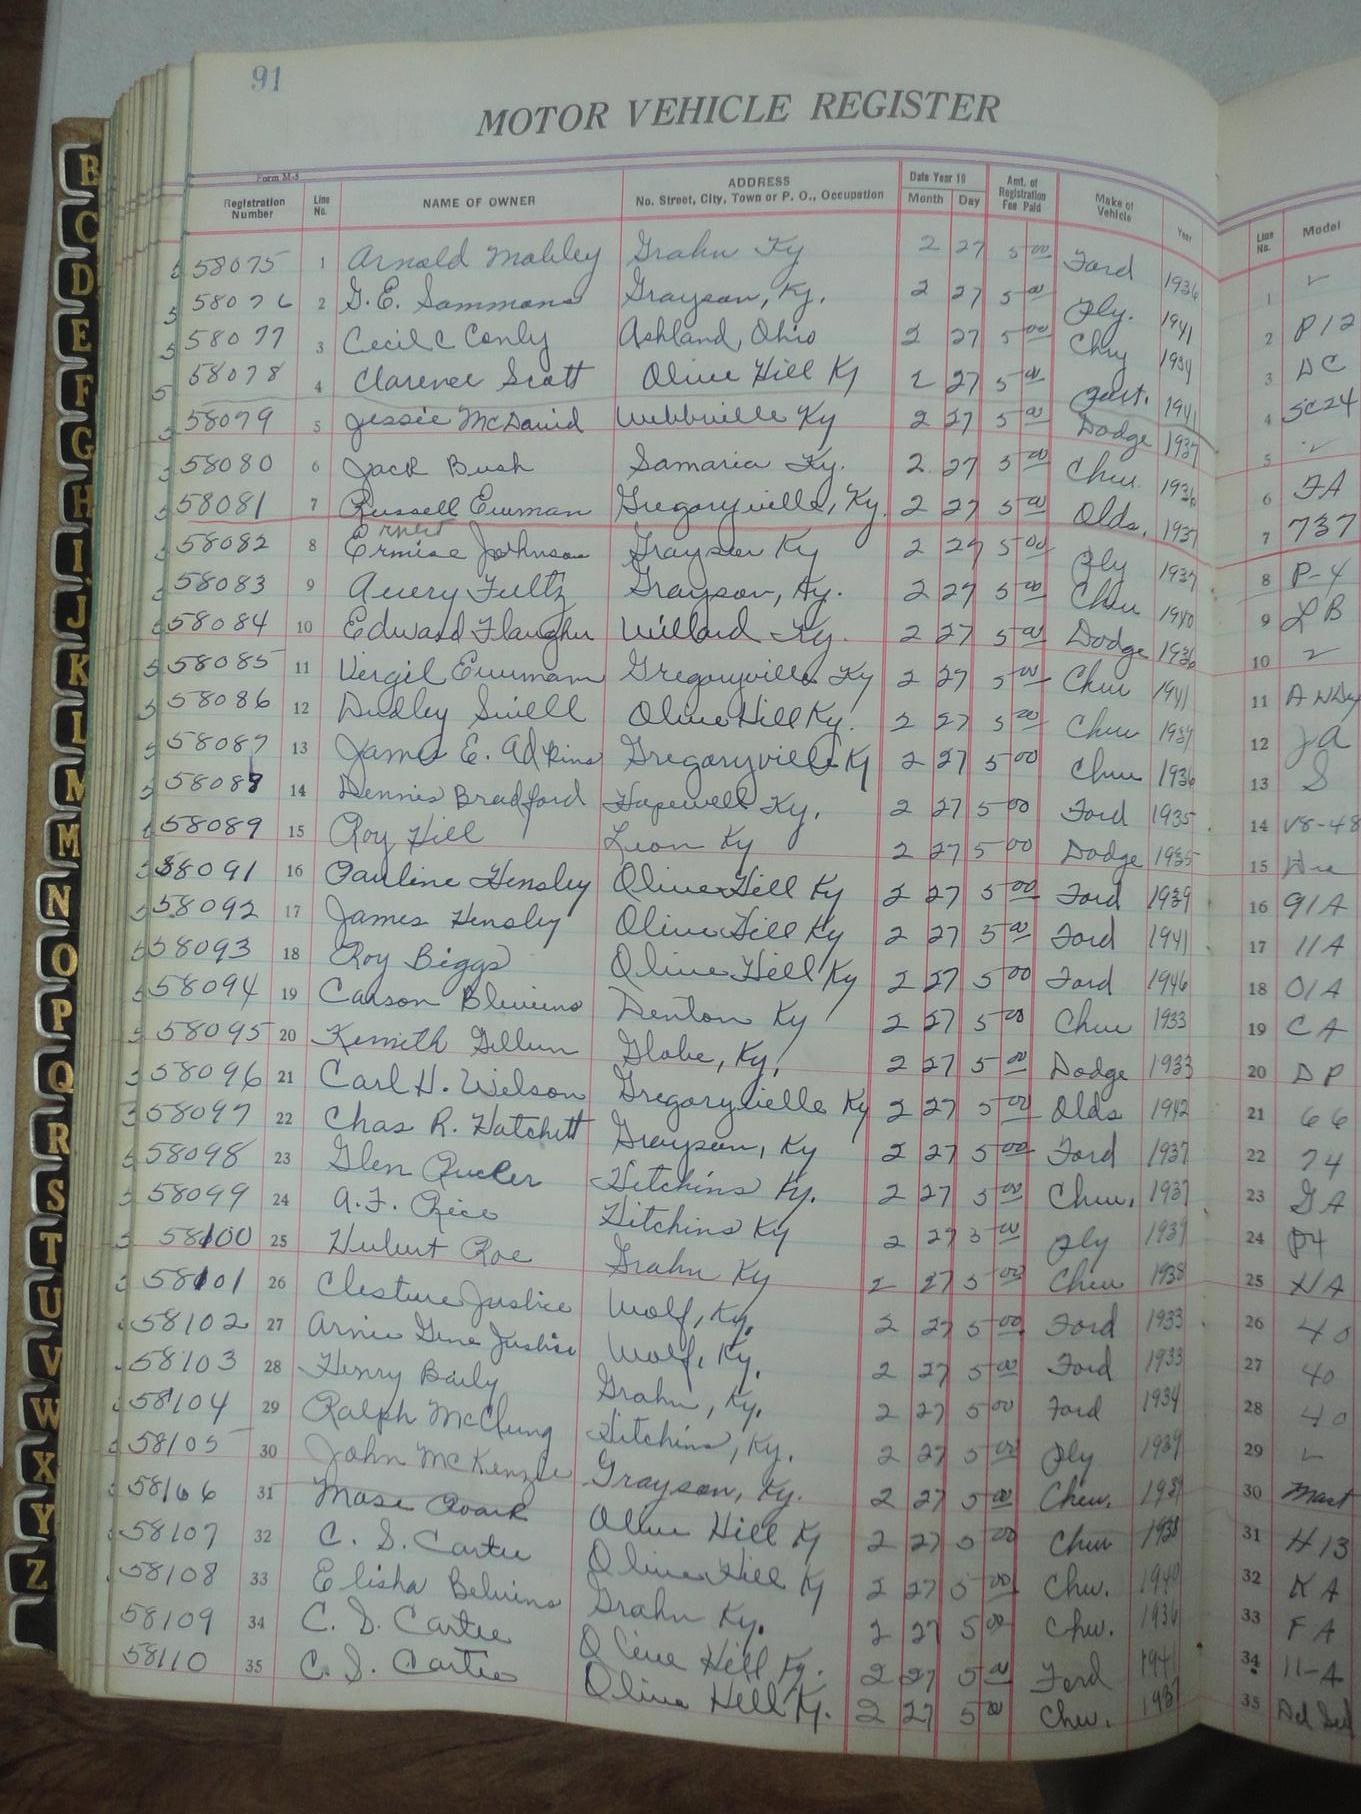 91
MOTOR VEHICLE REGISTER
Form M-5
Registration Number Line No. NAME OF OWNER ADDRESS No. Street, City, Town or P. O., Occupation Date Year 19 Month Day Amt. of Registration Fee Paid Make of Vehicle Year Line No. Model
58075 1 Arnold Mobley Grahn Ky 2 27 5 00 Ford 1936 1
58076 2 G. E. Sammons Grayson, Ky. 2 27 5 00 Ply. 1941 2 P12
58077 3 Cecil C Conly Ashland, Ohio 2 27 5 00 Chry 1934 3 DC
58078 4 Clarence Scott Olive Hill Ky 2 27 5 00 1941 4 SC24
58079 5 Jessie McDavid Webbville Ky 2 27 5 00 Dodge 1937 5
58080 6 Jack Bush Samaria Ky. 2 27 5 00 Chev. 1936 6 FA
58081 7 Russell Gregoryville, Ky. 2 27 5 00 Olds. 1937 7 737
58082 8 Ernest Johnson Grayson Ky 2 27 5 00 Ply 1937 8 P-4
58083 9 Avery Fultz Grayson, Ky. 2 27 5 00 Chev 1940 9 LB
58084 10 Edward Flaugher Willard Ky. 2 27 5 00 Dodge 1936 10
58085 11 Virgil Gregoryville Ky 2 27 5 00 Chev 1941 11
58086 12 Dudley Olive Hill Ky. 2 27 5 00 Chev 12
58087 13 James E. Adkins Gregoryville Ky 2 27 5 00 Chev 1936 13 S
58088 14 Dennis Bradford Hopewell Ky. 2 27 5 00 Ford 1935 14 V8-48
58089 15 Roy Hill Leon Ky 2 27 5 00 Dodge 1935 15
58091 16 Pauline Hensley Olive Hill Ky 2 27 5 00 Ford 1939 16 91A
58092 17 James Hensley Olive Hill Ky 2 27 5 00 Ford 1941 17 11A
58093 18 Roy Biggs Olive Hill Ky 2 27 5 00 Ford 1946 18 01A
58094 19 Carson Blevins Denton Ky 2 27 5 00 Chev 1933 19 CA
58095 20 Globe, Ky. 2 27 5 00 Dodge 1933 20 DP
58096 21 Carl H. Wilson Gregoryville Ky 2 27 5 00 Olds 1942 21 66
58097 22 Chas R. Hatchett Grayson, Ky 2 27 5 00 Ford 1937 22 74
58098 23 Glen Rucker Hitchins Ky. 2 27 5 00 Chev. 1937 23 GA
58099 24 A. F. Rice Hitchins Ky 2 27 5 00 Ply 1939 24 P4
58100 25 Hubert Roe Grahn Ky 2 27 5 00 Chev 1938 25 HA
58101 26 Justice Wolf, Ky. 2 27 5 00 Ford 1933 26 40
58102 27 Arnie Gene Justice Wolf, Ky. 2 27 5 00 Ford 1933 27 40
58103 28 Henry Baily Grahn, Ky. 2 27 5 00 Ford 1934 28 40
58104 29 Ralph McClung Hitchins, Ky. 2 27 5 00 Ply 1939 29
58105 30 John McKenzie Grayson, Ky. 2 27 5 00 Chev. 30 Mast
58106 31 Mose Olive Hill Ky 2 27 5 00 Chev 1938 31 H13
58107 32 C. S. Cartee Olive Hill Ky 2 27 5 00 Chev. 1940 32 KA
58108 33 Elisha Belvins Grahn Ky. 2 27 5 00 Chev. 1936 33 FA
58109 34 C. S. Cartee Olive Hill Ky. 2 27 5 00 Ford 1941 34 11-A
58110 35 C. S. Cartee Olive Hill Ky. 2 27 5 00 Chev. 1937 35
B
C
D
E
F
G
H
I
J
K
L
M
M
N
O
P
Q
R
S
T
U
V
W
X
Y
Z